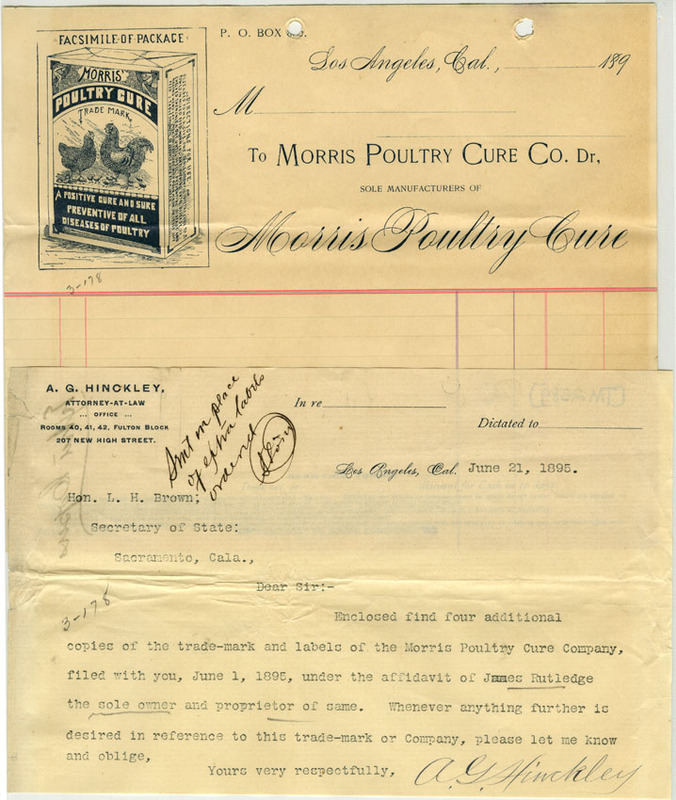 FACSIMILE OF PACKAGE
MORRIS'
POULTRY CURE
TRADE MARK
A POSITIVE CURE AND SURE
PREVENTIVE OF ALL
DISEASES OF POULTRY
P. O. BOX
Los Angeles, Cal., 189
M
To Morris Poultry Cure Co. Dr,
SOLE MANUFACTURERS OF
Morris Poultry Cure
3-178
A. G. HINCKLEY,
ATTORNEY-AT-LAW
... OFFICE ...
ROOMS 40, 41, 42, FULTON BLOCK
207 NEW HIGH STREET.
Sent in place
of extra labels
ordered
In re
Dictated to
Los Angeles, Cal. June 21, 1895.
Hon. L. H. Brown;
Secretary of State:
Sacramento, Cala.,
Dear Sir:-
3-178
Enclosed find four additional
copies of the trade-mark and labels of the Morris Poultry Cure Company,
filed with you, June 1, 1895, under the affidavit of James Rutledge
the sole owner and proprietor of same. Whenever anything further is
desired in reference to this trade-mark or Company, please let me know
and oblige,
Yours very respectfully,
A. G. Hinckley